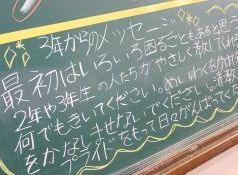 3年からのメッセージ
最初はいろいろ困ることもあると思う
2年や3年生の人たちがやさしく教えてくれ
何でもきいてください。めいわくをかけ
をかなしませないでください。清教
プライドをもって日々がんばってくだ